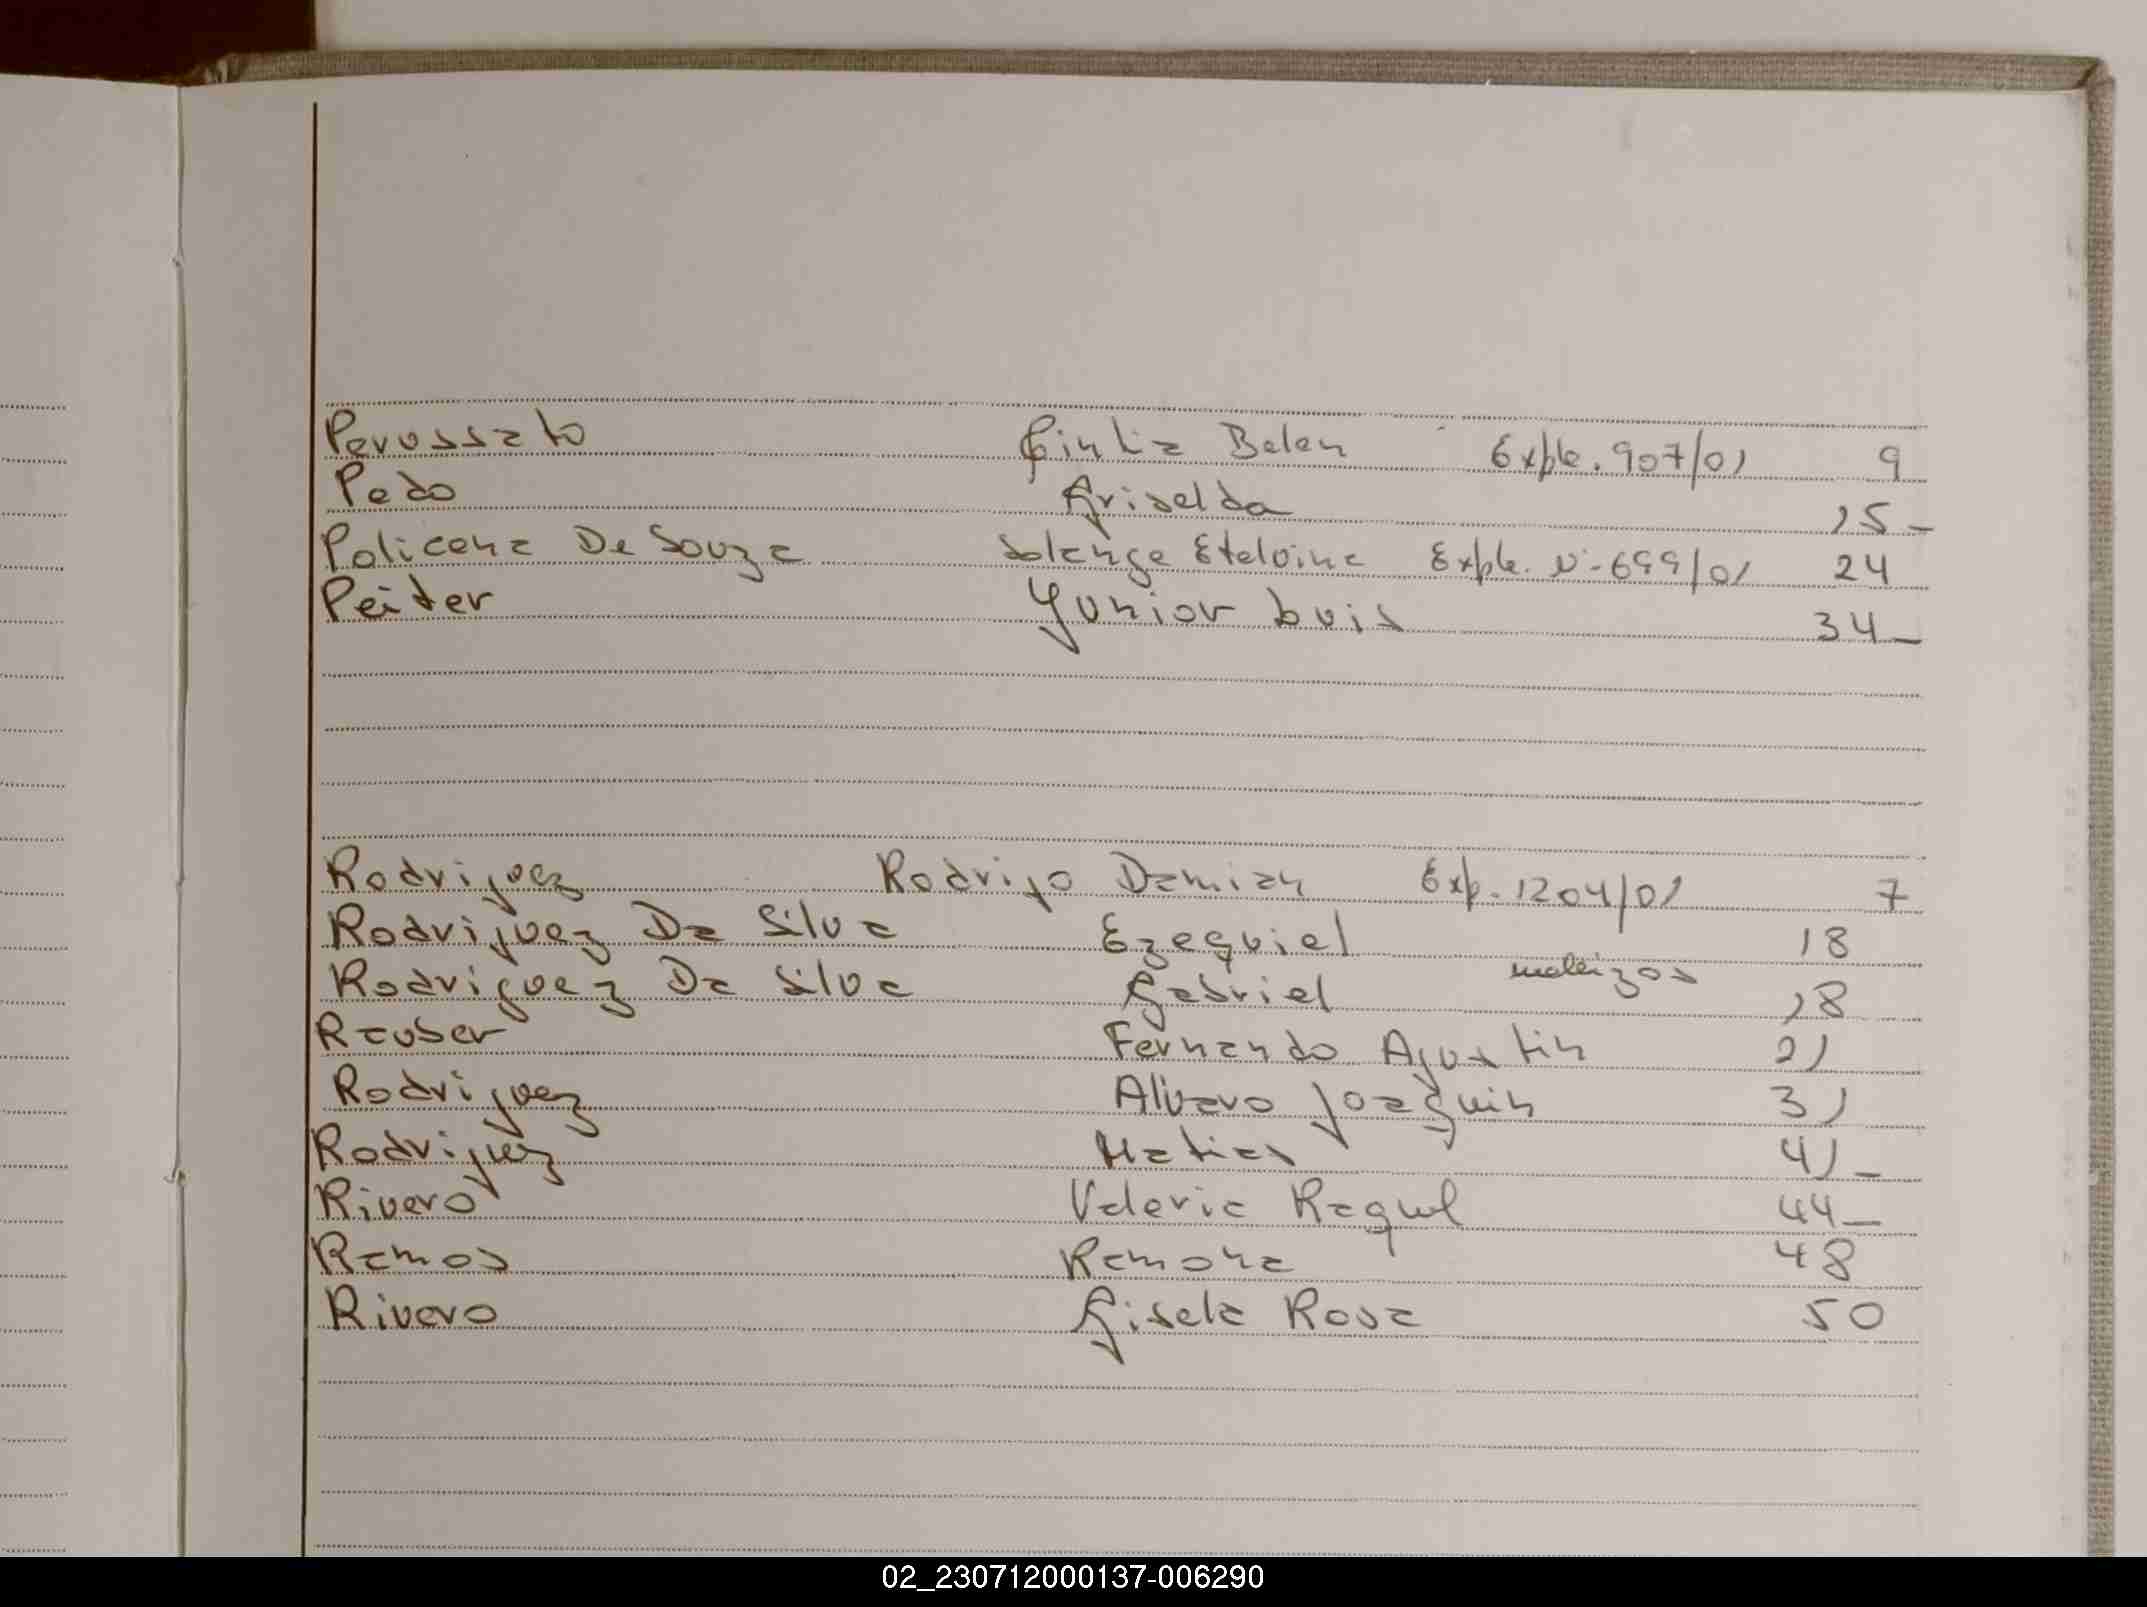 Perussato Cintia Belen Expte. 907/01 9
Pedo Griselda 15-
Policena De Souza Solange Etelvina Expte. Nº 699/01 24
Peiter Yunior Luis 34-
Rodriguez Rodrigo Damian Exp. 1204/01 7
Rodriguez Da Silva Ezequiel 18
mellizos
Rodriguez Da Silva Gabriel 18
Rauber Fernando Agustin 21
Rodriguez Alvaro Joaquin 31
Rodriguez Matias 41-
Rivero Valeria Raquel 44-
Ramos Ramona 48
Rivero Gisela Rosa 50
02_230712000137-006290